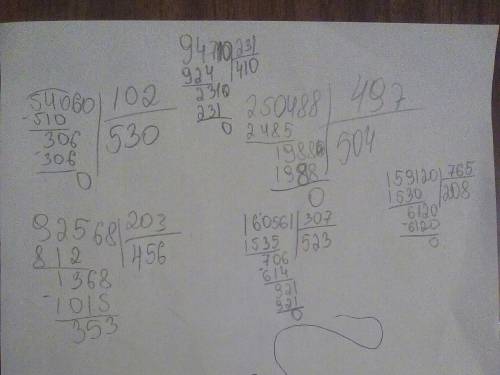 94710 231
924 410
2310
231
0
54060 102
-510 530
306
-306
0
250488 497
2485 504
1988
1988
0
159120 765
1530 208
6120
-6120
0
92568 203
812 456
1368
-1015
353
160561 307
1535 523
706
-614
921
921
0